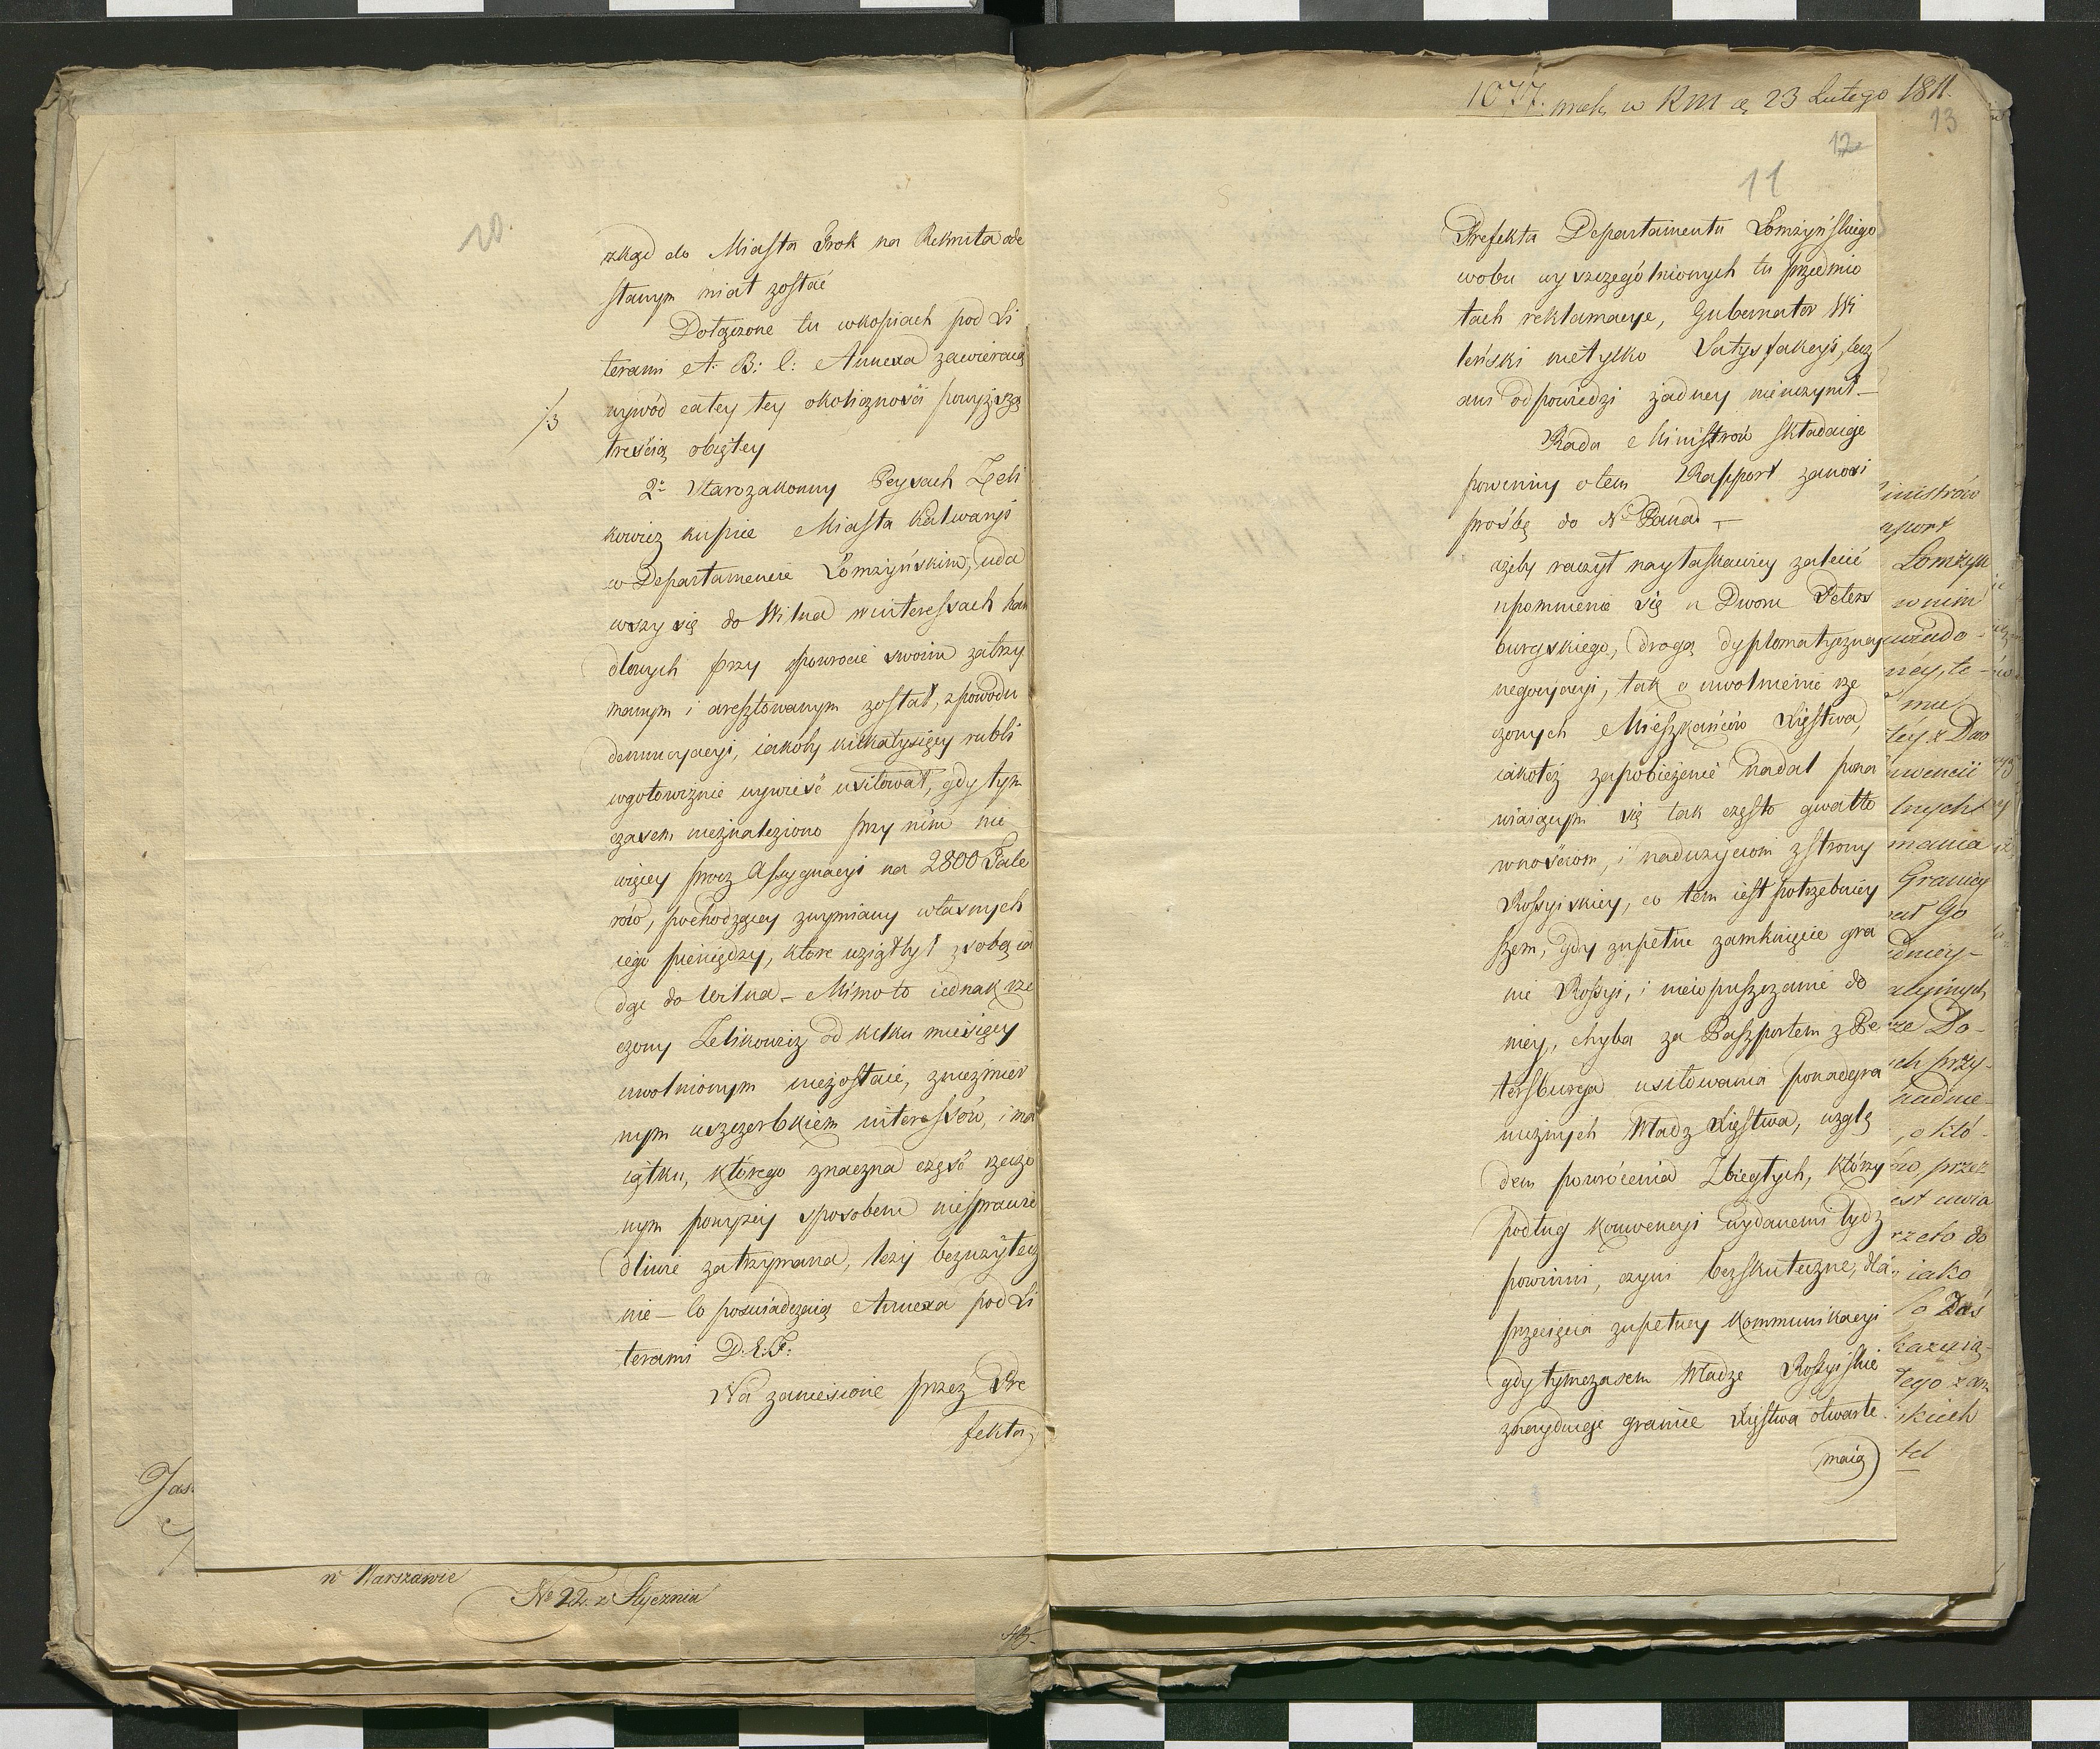 10.
zkąd do Miasta Grok na Rekruta ode
słanym miał zostać
Dołączone tu wkopiach pod Li
terami A: B: C: Annexa zawieraią
wywód całey tey okoliczności powyższą
treścią obiętey
2o Starozakonny Peysach Zeli
kowicz kupiec Miasta Kalwaryi
w Departamencie Łomżyńskim, uda
wszy się do Wilna winteressach han
dlowych przy powrocie swoim zatrzy
manym i aresztowanym został, zpowodu
denuncyacyi, iakoby kilkatysięcy rubli
wgotowiźnie wywieść usiłował, gdy tym
czasem nieznaleziono przy nim nic
więcey procz Assygnacyi na 2800 Tale
rów, pochodzącey zwymiany własnych
iego pieniędzy, które wziął był z sobą ia
dąc do Wilna – Mimo to iednak rze
czony Zelikowicz od kilku miesięcy
uwolnionym niezostaie, zniezmier
nym uszczerbkiem interessów, i ma
iątku, którego znaczna część rzeczo
nym powyżey sposobem niesprawie
dliwie zatrzymana, leży bezużytecz
nie – Co poświadczaią Annexa pod Li
terami D.E.F:
Na zaniesione przez Pre
fekta
w Warszawie
No 22. z Stycznia
1077. w RM 23 Lutego 1811.
13
12
11
Prefekta Departamentu Łomżyńskiego
wobu wyszczególnionych tu przedmio
tach reklamacye, Gubernator Wi
leński nietylko Satysfakcyi, lecz
ani odpowiedzi żadney nieuczynił –
Rada Ministrów składaiąc
powinny otem Rapport zanosi
prośbę do Nco Pana –
ażeby raczył nayłaskawiey zalecić
upomnienie się u Dworu Peters
burgskiego, drogą dyplomatyczney
negocyacyi, tak o uwolnienie rze
czonych Mieszkańców Xięstwa,
iakoteż zapobieżenie nadal pona
wiaiącym się tak często gwałto
wnościom, i nadużyciom zstrony
Rossyiskiey, co tem iest potrzebniey
szem, gdy zupełne zamknięcie gra
nic Rossyi, i niewpuszczanie do
niey, chyba za Paszportem z Pe
tersburga usiłowania ponadgra
nicznych Władz Xięstwa, wzglę
dem powrócenia Zbiegłych, którzy
podług konwencyi wydanemi bydź
powinni, czyni bezskuteczne, dla
przecięcia zupełney kommunikacyi
gdy tymczasem Władze Rossyiskie
znayduiąc granice Xięstwa otwarte
maią